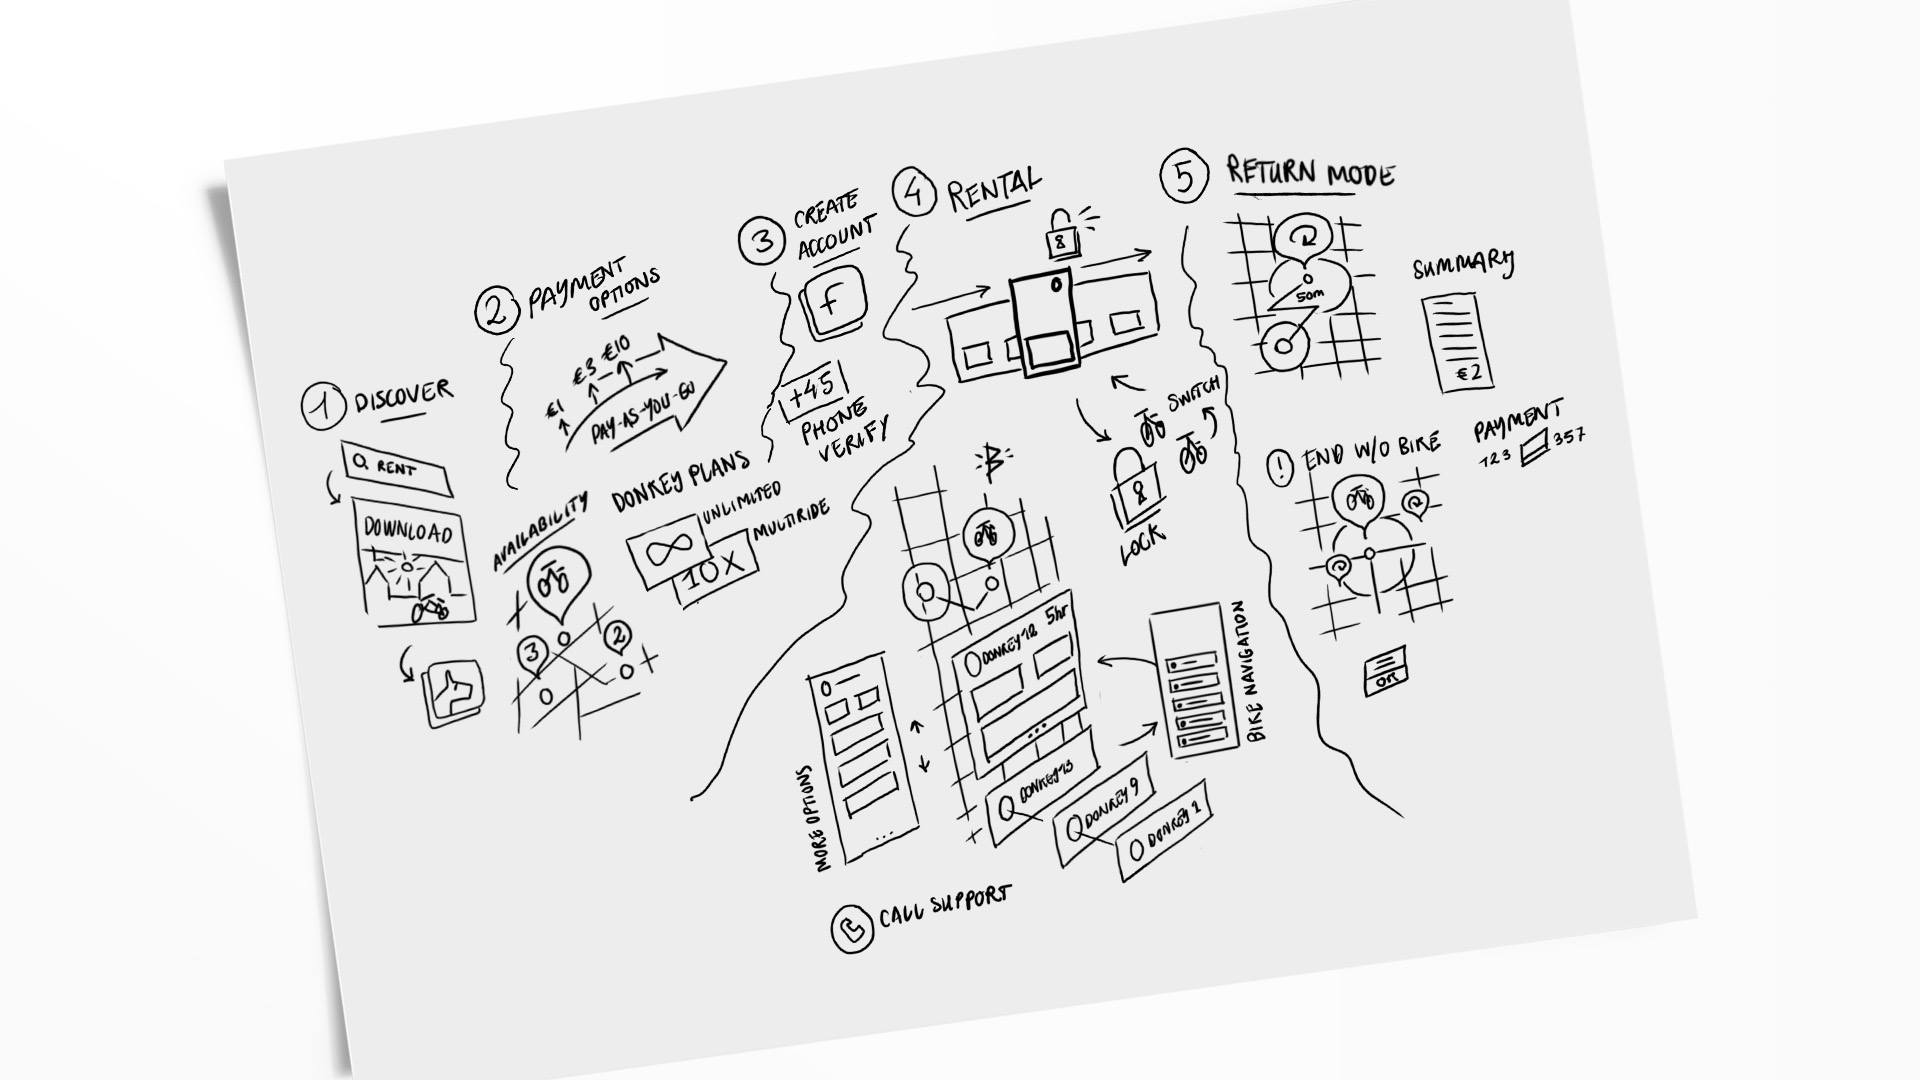 1 DISCOVER
RENT
DOWNLOAD
2 PAYMENT
OPTIONS
€1
€3
€10
PAY-AS-YOU-GO
AVAILABILITY
3
2
DONKEY PLANS
UNLIMITED
∞
MULTIRIDE
10X
3 CREATE
ACCOUNT
f
+45
PHONE
VERIFY
4 RENTAL
8
SWITCH
8
LOCK
DONKEY 12 5hr
...
DONKEY 13
DONKEY 9
DONKEY 1
BIKE NAVIGATION
MORE OPTIONS
...
CALL SUPPORT
5 RETURN MODE
50m
SUMMARY
€2
PAYMENT
123 357
! END W/O BIKE
OK